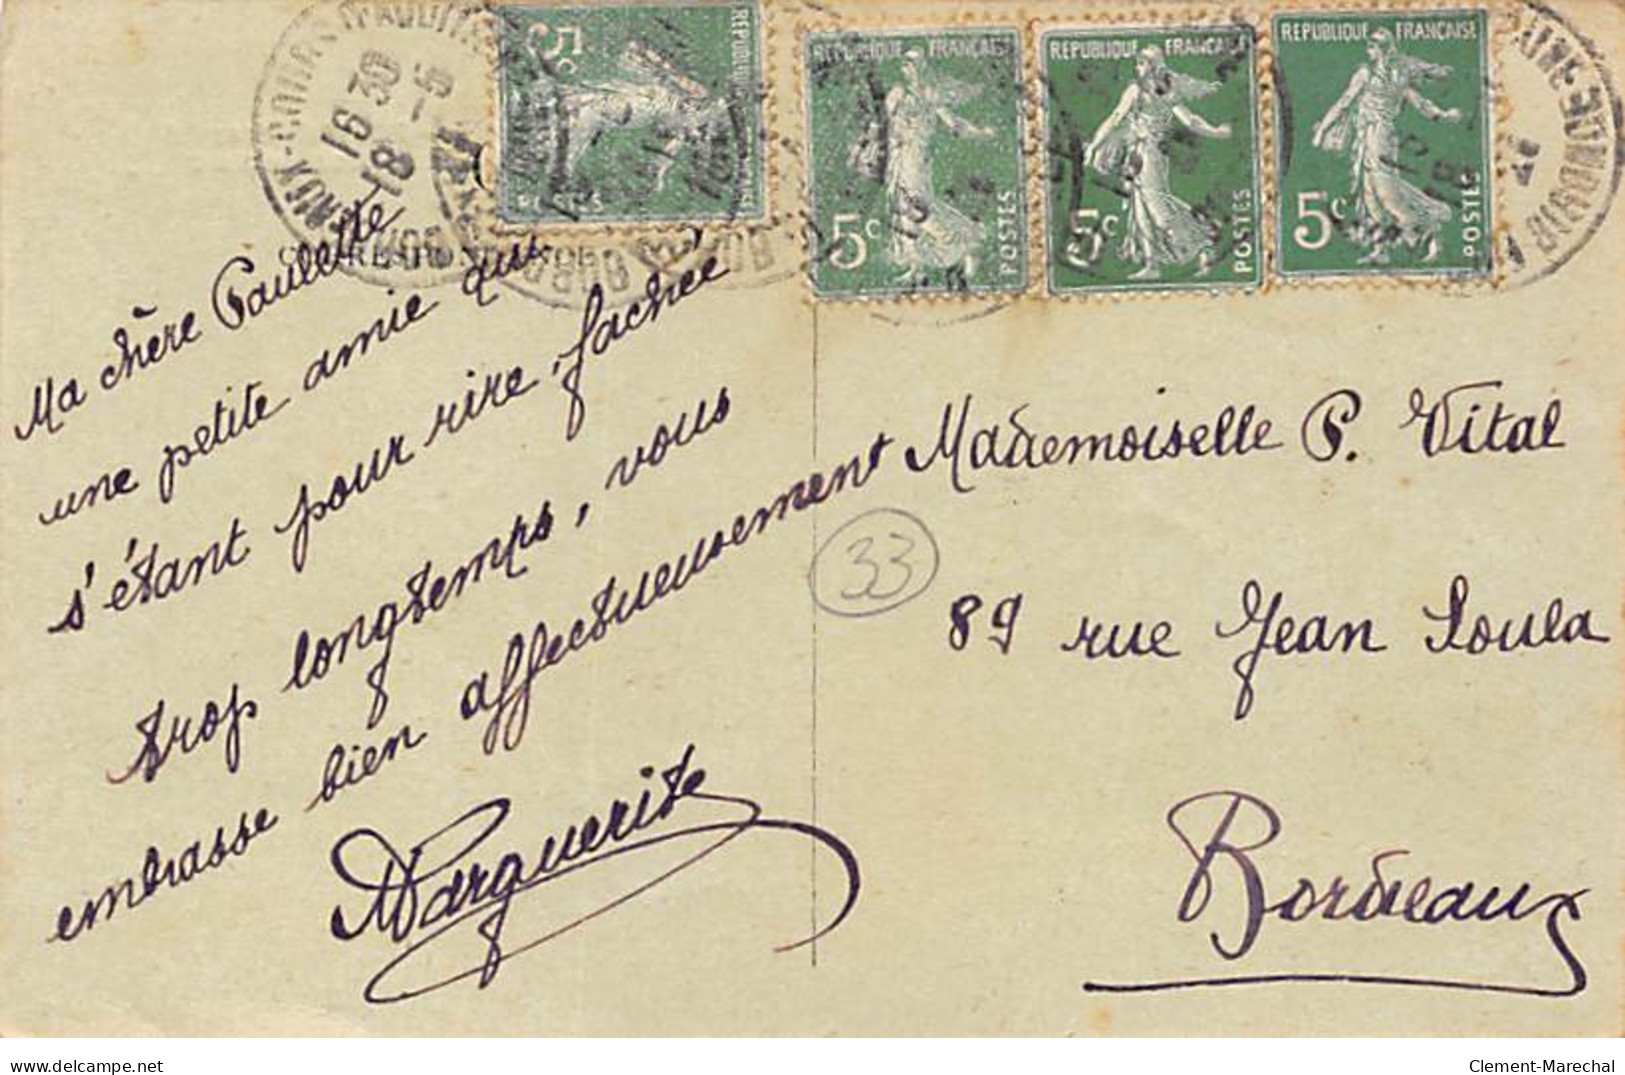 RÉPUBLIQUE FRANÇAISE
5c
POSTES
RÉPUBLIQUE FRANÇAISE
5c
POSTES
RÉPUBLIQUE FRANÇAISE
5c
POSTES
RÉPUBLIQUE FRANÇAISE
5c
POSTES
16 30
18 - 6
18
CORRESPONDANCE
Ma chère Paulette
une petite amie qui
s'étant pour rire, fachée
trop longtemps, vous
embrasse bien affectueusement
Marguerite
33
Mademoiselle P. Vital
89 rue Jean Soula
Bordeaux
delcampe.net
Clement-Marechal